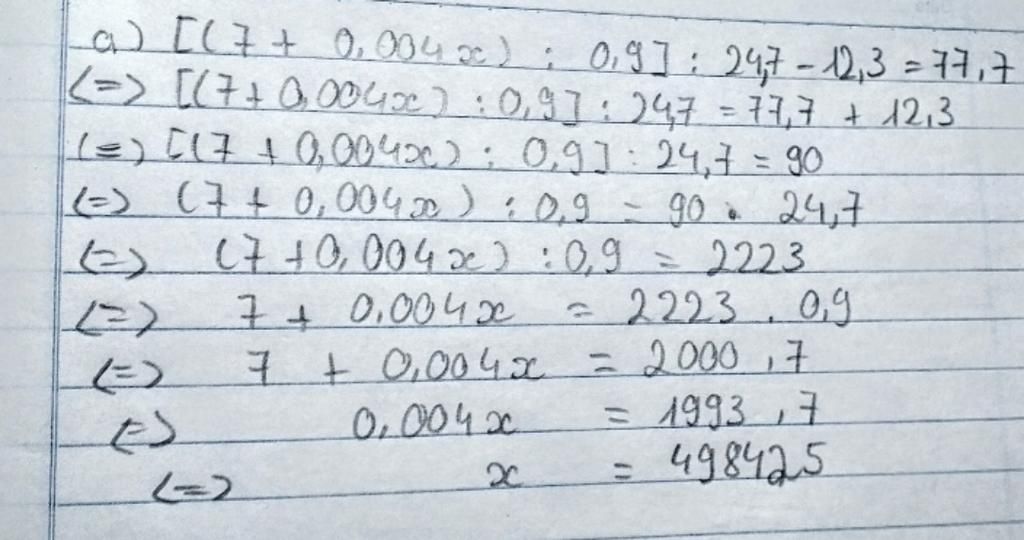 a) [(7 + 0,004x) : 0,9] : 24,7 - 12,3 = 77,7
<=> [(7 + 0,004x) : 0,9] : 24,7 = 77,7 + 12,3
<=> [(7 + 0,004x) : 0,9] : 24,7 = 90
<=> (7 + 0,004x) : 0,9 = 90 . 24,7
<=> (7 + 0,004x) : 0,9 = 2223
<=> 7 + 0,004x = 2223 . 0,9
<=> 7 + 0,004x = 2000,7
<=> 0,004x = 1993,7
<=> x = 498425